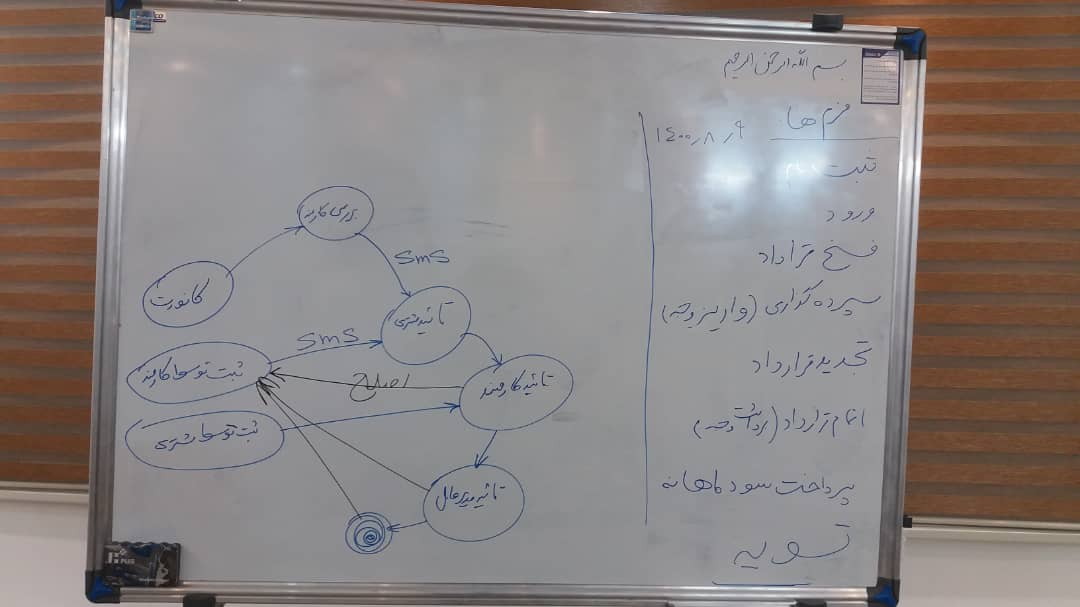 بسم الله الرحمن الرحیم
فرم ها
۱۴۰۰٫۸٫۹
ثبت نام
ورود
فسخ قرارداد
سپرده گذاری (واریز وجه)
تمدید قرارداد
اتمام قرارداد (برداشت وجه)
پرداخت سود ماهانه
تسویه
بررسی کارمند
sms
کانورت
تائید مشتری
sms
ثبت توسط کارمند
اصلاح
تائید کارمند
ثبت توسط مشتری
تائید مدیرعامل
PLUS